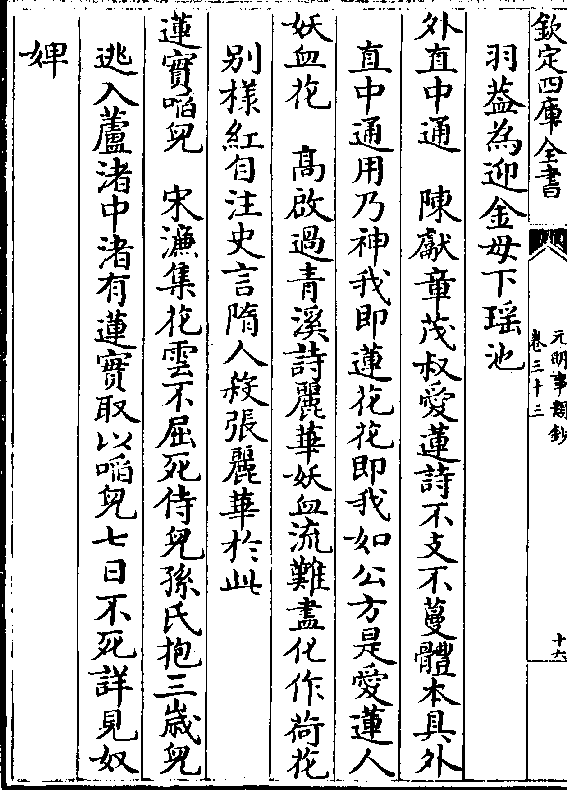 欽定四庫全書
元明事類鈔
卷三十三
十六
羽葢為迎金母下瑶池
外直中通　陳獻章茂叔愛蓮詩不支不蔓體本具外
直中通用乃神我即蓮花花即我如公方是愛蓮人
妖血花　高啟過青溪詩麗華妖血流難盡化作荷花
别樣紅自注史言隋人殺張麗華於此
蓮實啗兒　宋濂集花雲不屈死侍兒孫氏抱三歲兒
逃入蘆渚中渚有蓮實取以啗兒七日不死詳見奴
婢